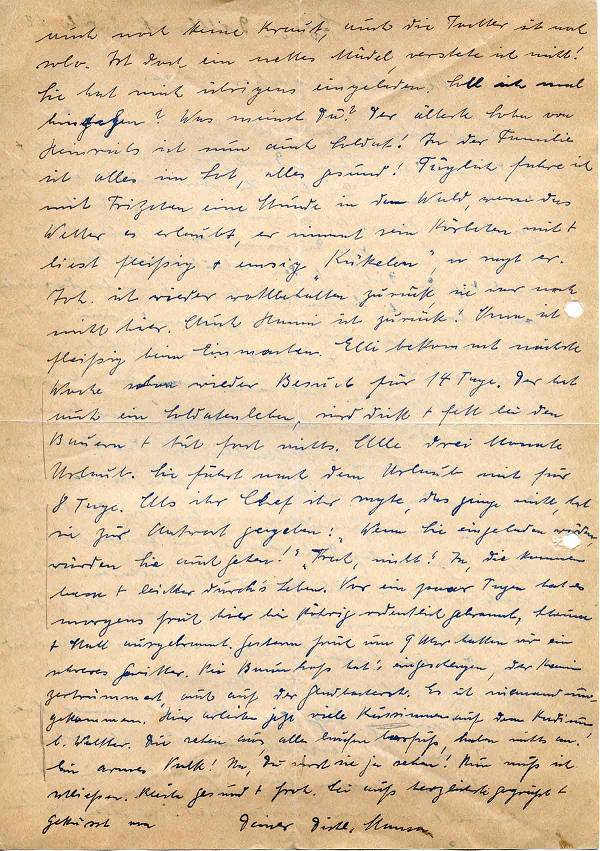 auch noch keine Kraut, auch die Tochter ist noch
solo. Ist doch ein nettes Mädel, verstehe ich nicht!
Sie hat mich übrigens eingeladen. Soll ich mal
hingehen? Was meinst Du? Der älteste Sohn von
Heinrichs ist nun auch Soldat! In der Familie
ist alles im Lot, alles gesund! Täglich fahre ich
mit eine Stunde in den Wald, wenn das
Wetter es erlaubt, er nimmt sein Körbchen mit +
liest fleißig + emsig „Kükelen", so sagt er.
Joh. ist wieder wohlbehalten zurück, sie nur noch
nicht hier. Auch Hanni ist zurück! ist
fleißig beim Einmachen. Elli bekommt nächste
Woche schon wieder Besuch für 14 Tage. Der hat
auch ein Soldatenleben, wird dick + fett bei den
Bauern + tut fast nichts. Alle drei Monate
Urlaub. Sie fährt nach dem Urlaub mit für
8 Tage. Als ihr Chef ihr sagte, das ginge nicht, hat
sie zur Antwort gegeben: „Wenn Sie eingeladen würden,
würden Sie auch gehen!" Frech, nicht? Ja, die kommen
besser + leichter durch's Leben. Vor ein paar Tagen hat es
morgens früh hier bei ordentlich gebrannt, Scheune
+ Stall ausgebrannt. Gestern früh um 9 Uhr hatten wir ein
schweres Gewitter. Bei hat's eingeschlagen, der Kamin
zertrümmert, auch auf der Es ist niemand um-
gekommen. Hier arbeiten jetzt viele Russinnen auf dem
b. Walther. Die sehen aus, alle laufen barfuß, haben nichts an.
Ein armes Volk! Na, Du wirst sie ja sehen! Nun muß ich
schließen. Bleibe gesund + froh. Sei aufs herzlichste gegrüßt +
geküsst von Deiner Dich